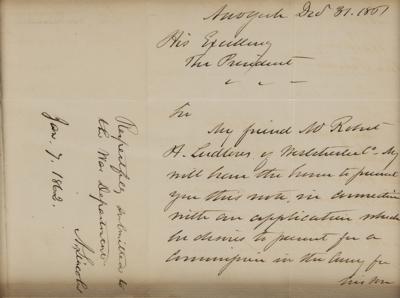 New York Dec 31. 1861
His Excellency
The President
Sir
My friend Mr Robert
H. Ludlow, of Westchester Co. N.Y.
will have the honor to present
you this note, in connection
with an application which
he desires to present for a
Commission in the Army for
his son
Respectfully submitted to
the War Department.
A. Lincoln
Jan. 7. 1862.